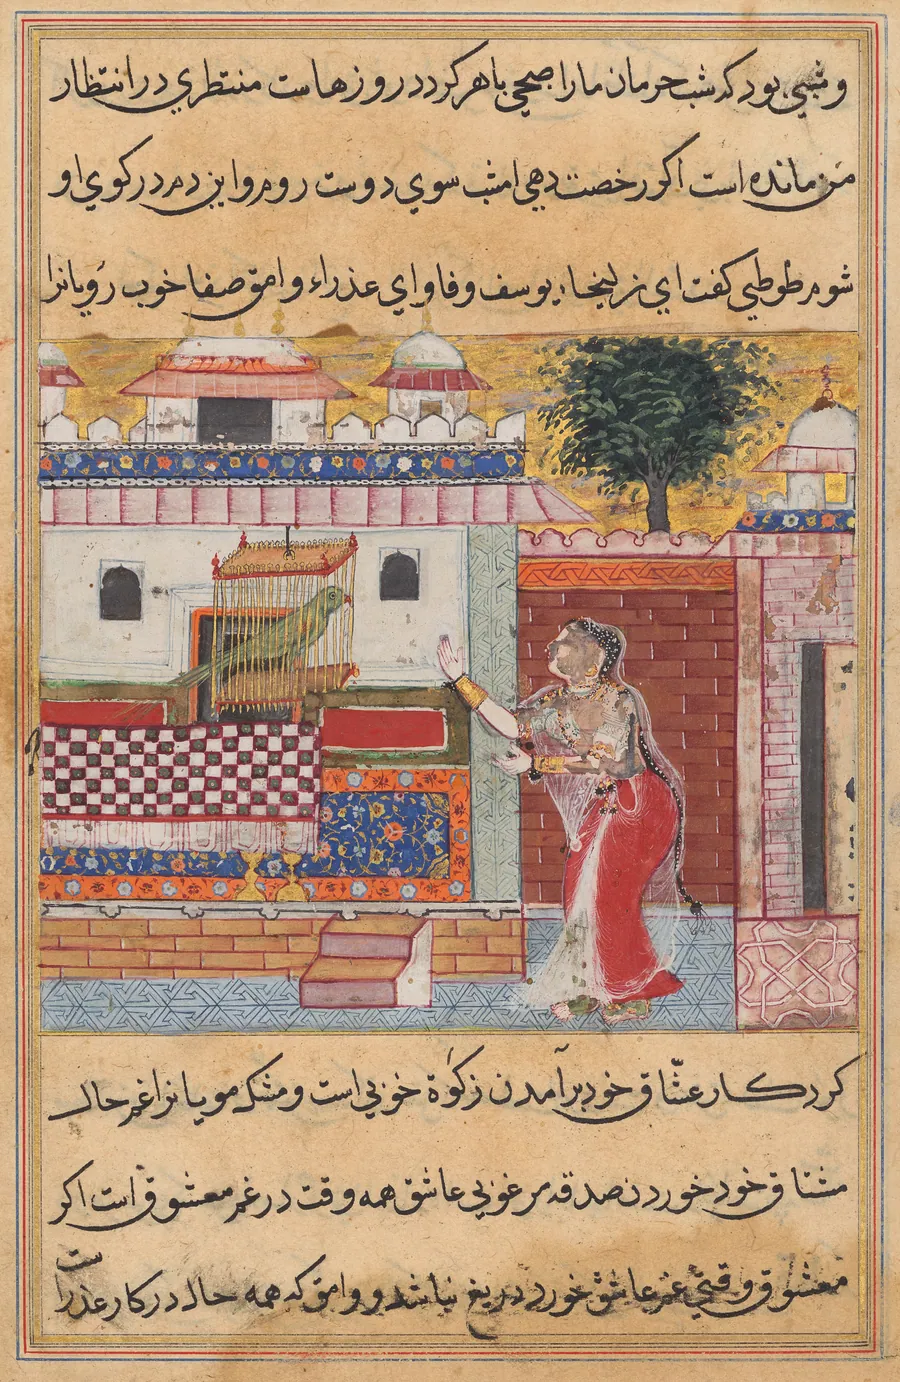 و شبی بود که شب حرمان ما را صبحی باهر کردد روزهاست منتظري در انتظار
من مانده است اکر رخصت دهي امشب سوي دوست روم و این دم در کوي او
شوم طوطي کفت اي زلیخاء یوسف وفا و اي عذراء وامق صفا خوب رویانرا
کرد کار عشّاق خود برآمدن زکوٰة خوبي است و مشک مویانرا غم حال
مشتاق خود خوردن صدقه مرغوبي عاشق همه وقت در غم معشوق است اکر
معشوق وقتي غم عاشق خورد دریغ نباشد و وامق که همه حال در کار عذراست